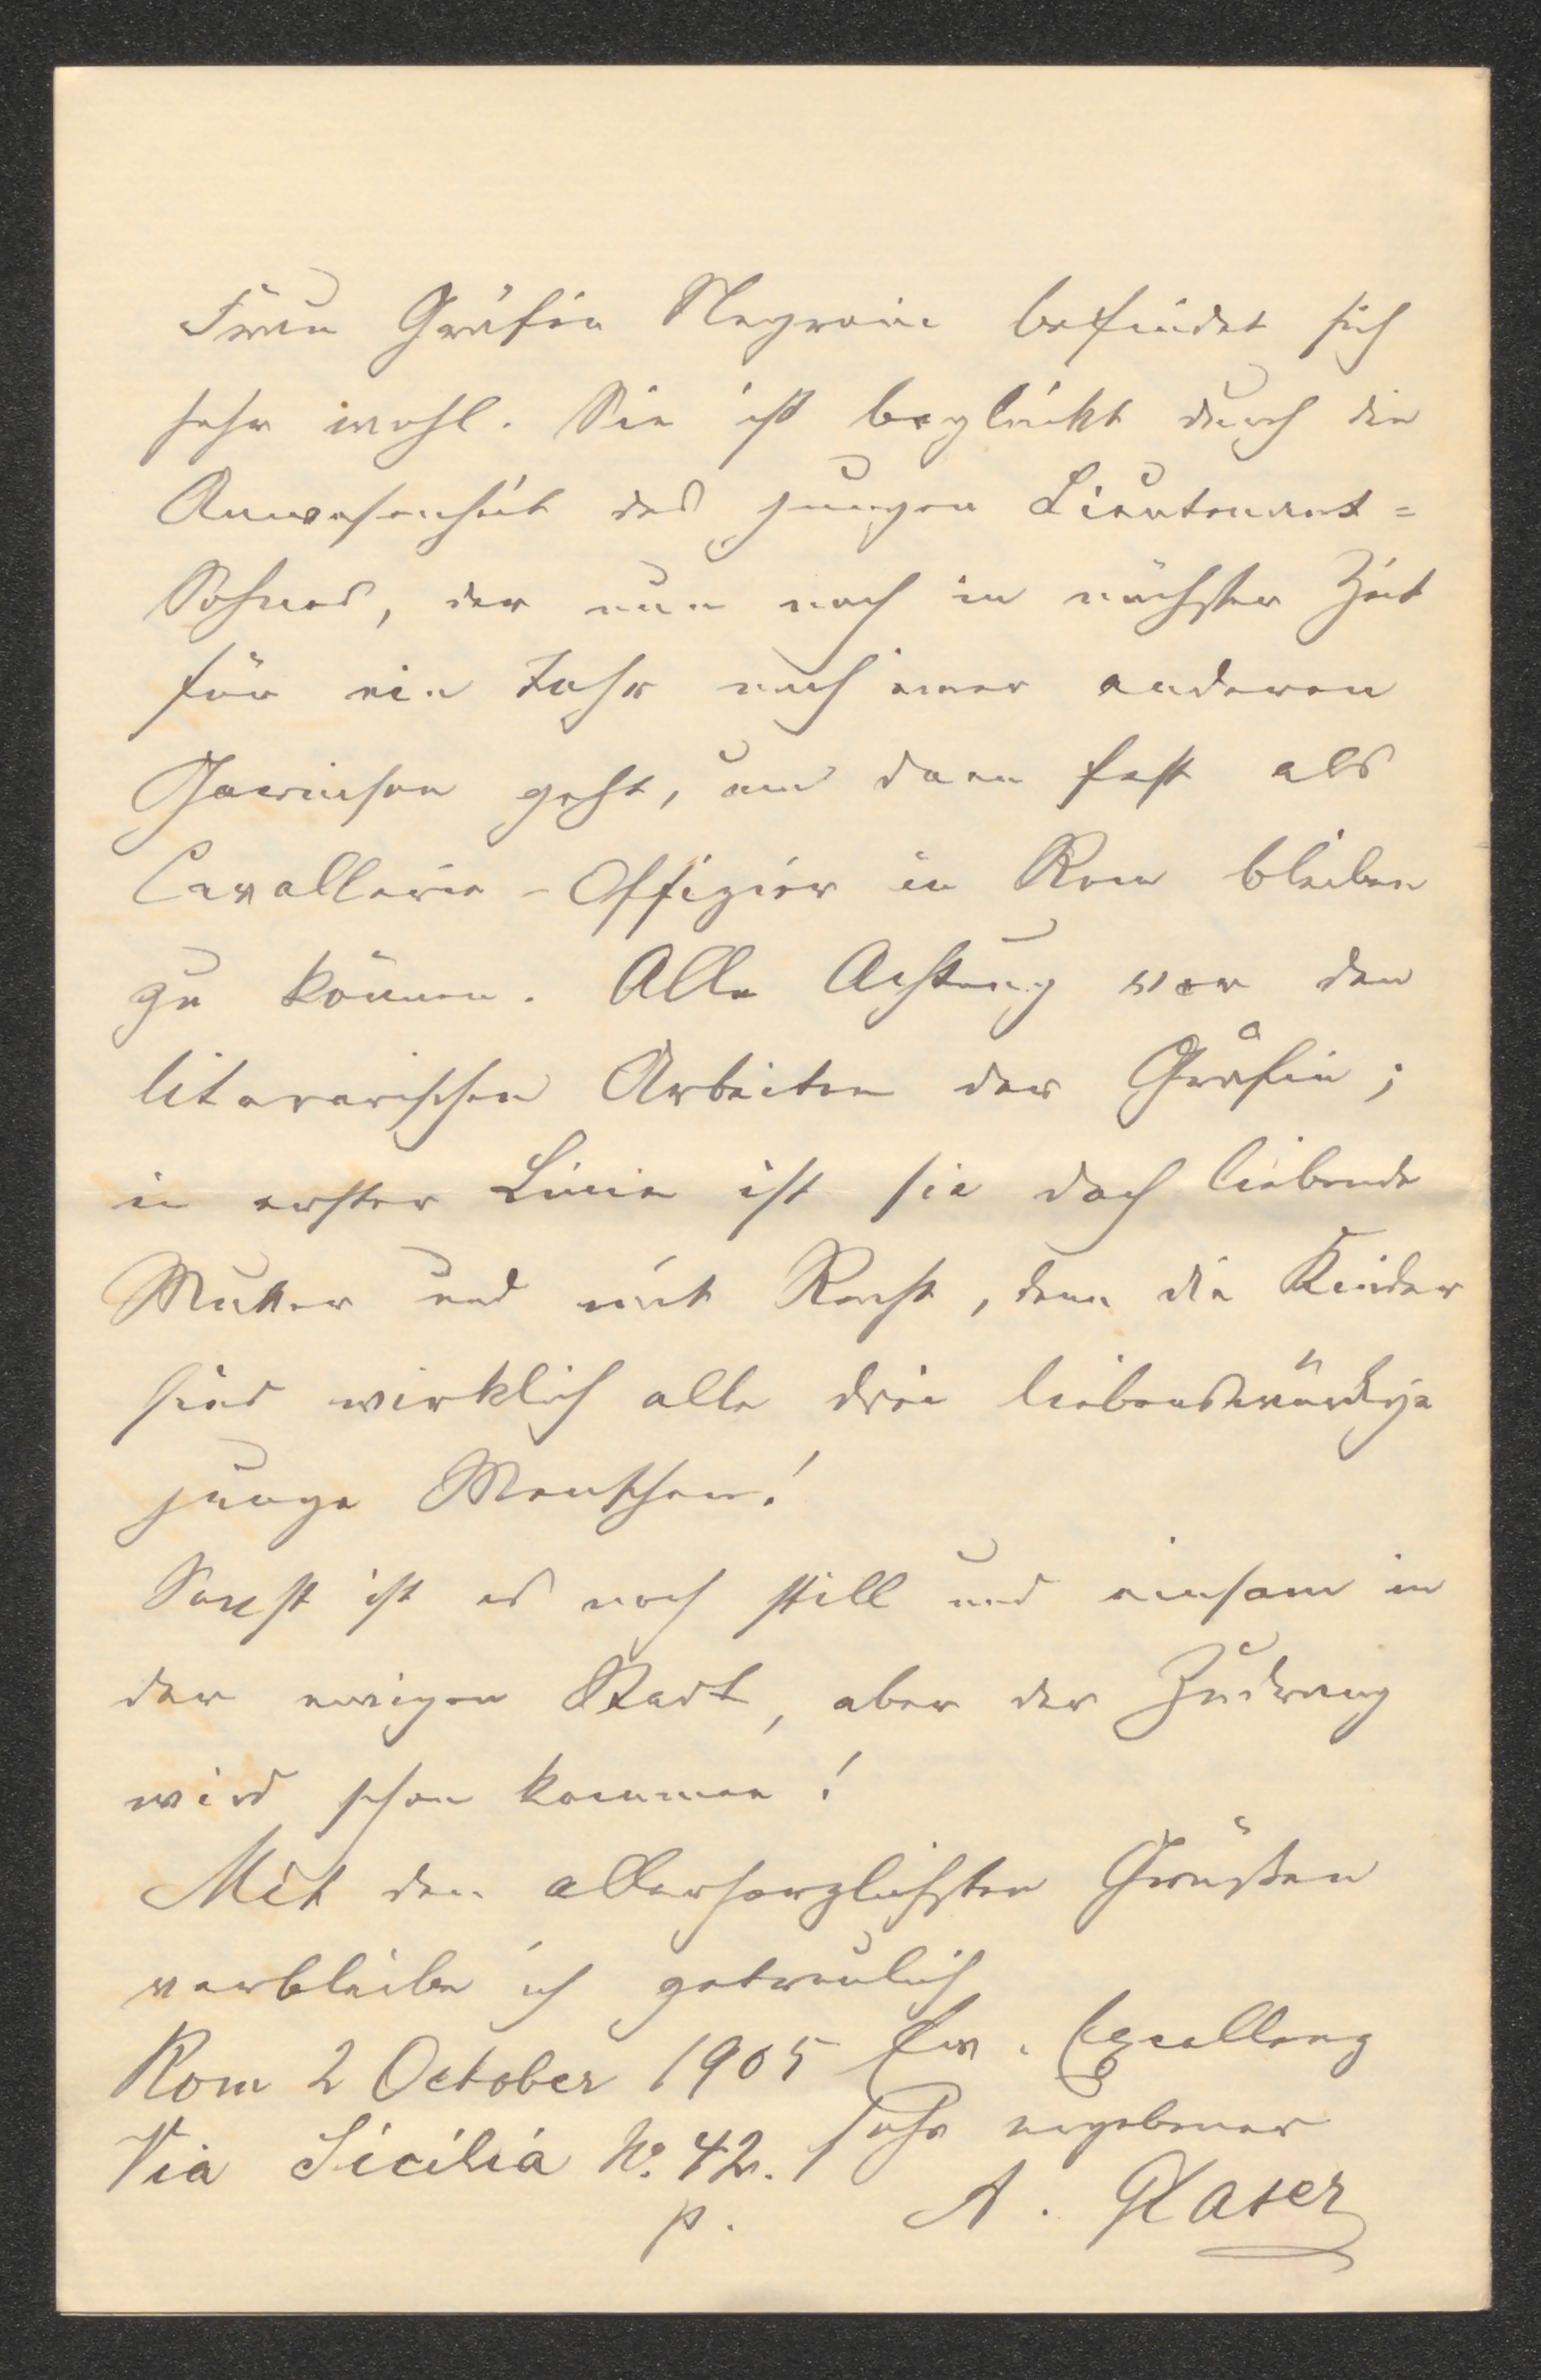 Frau Gräfin Negroni befindet sich
sehr wohl. Sie ist beglückt durch die
Anwesenheit des jungen Lieutenant=
Sohnes, der nun noch in nächster Zeit
für ein Jahr nach einer anderen
Garnison geht, um dann fest als
Cavallerie-Offizier in Rom bleiben
zu können. Alle Achtung vor den
literarischen Arbeiten der Gräfin;
in erster Linie ist sie doch liebende
Mutter und mit Recht, denn die Kinder
sind wirklich alle drei liebenswürdige
junge Menschen!
Sonst ist es noch still und einsam in
der ewigen Stadt, aber der Zudrang
wird schon kommen!
Mit den allerherzlichsten Grüßen
verbleibe ich getreulich
Ew. Excellenz
sehr ergebener
A. Glaser
Rom 2 October 1905
Via Sicilia No. 42.
p.